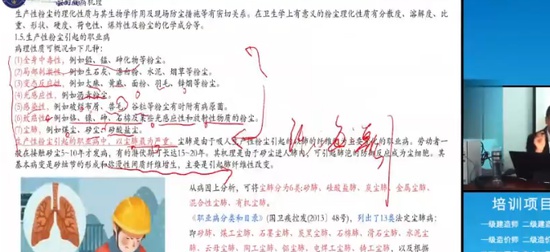 生产性粉尘的理化性质与其生物学作用及现场防尘措施等有密切关系。在卫生学上有意义的粉尘理化性质有分散度、溶解度、比
重、形状、硬度、荷电性、爆炸性及粉尘的化学成分等。
1.5.生产性粉尘引起的职业病
病理性质可概况如下几种：
(1)全身中毒性，例如铅、锰、砷化物等粉尘。
(2)局部刺激性，例如生石灰、漂白粉、水泥、烟草等粉尘。
(3)变态反应性，例如大麻、黄麻、面粉、羽毛、锌烟等粉尘。
(4)光感应性，例如沥青粉尘。
(5)感染性，例如破烂布屑、兽毛、谷粒等粉尘有时附有病原菌。
(6)致癌性，例如铬、镍、砷、石棉及某些光感应性和放射性物质的粉尘。
(7)尘肺，例如煤尘、矽尘、矽酸盐尘。
生产性粉尘引起的职业病中，以尘肺最为严重。尘肺是由于吸入生产性粉尘引起的以肺的纤维化为主要
的职业病。劳动者一
般在接触矽尘5~10年才发病，有的潜伏期可长达15~20年。其机理是由于矽尘进入肺内，可引起肺泡的防御反应成为尘细胞。其
基本病变是矽结节的形成和弥漫性间质纤维增生，主要是引起肺纤维性改变。
从病因上分析，可将尘肺分为6类：矽肺、硅酸盐肺、炭尘肺、金属尘肺、
混合性尘肺、有机尘肺。
《职业病分类和目录》(国卫疾控发(2013) 48号)，列出了13类法定尘肺病：
即矽肺、煤工尘肺、石墨尘肺、炭黑尘肺、石棉肺、滑石尘肺、水泥尘
肺、云母尘肺、陶工尘肺、铝尘肺、电焊工尘肺、铸工尘肺、以及根据
培训项目
一级建造师 二级建造